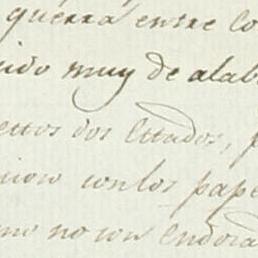 guerra entre co
cido muy de alab
ettos dos Estados,
cion con los pape
mo no con endora